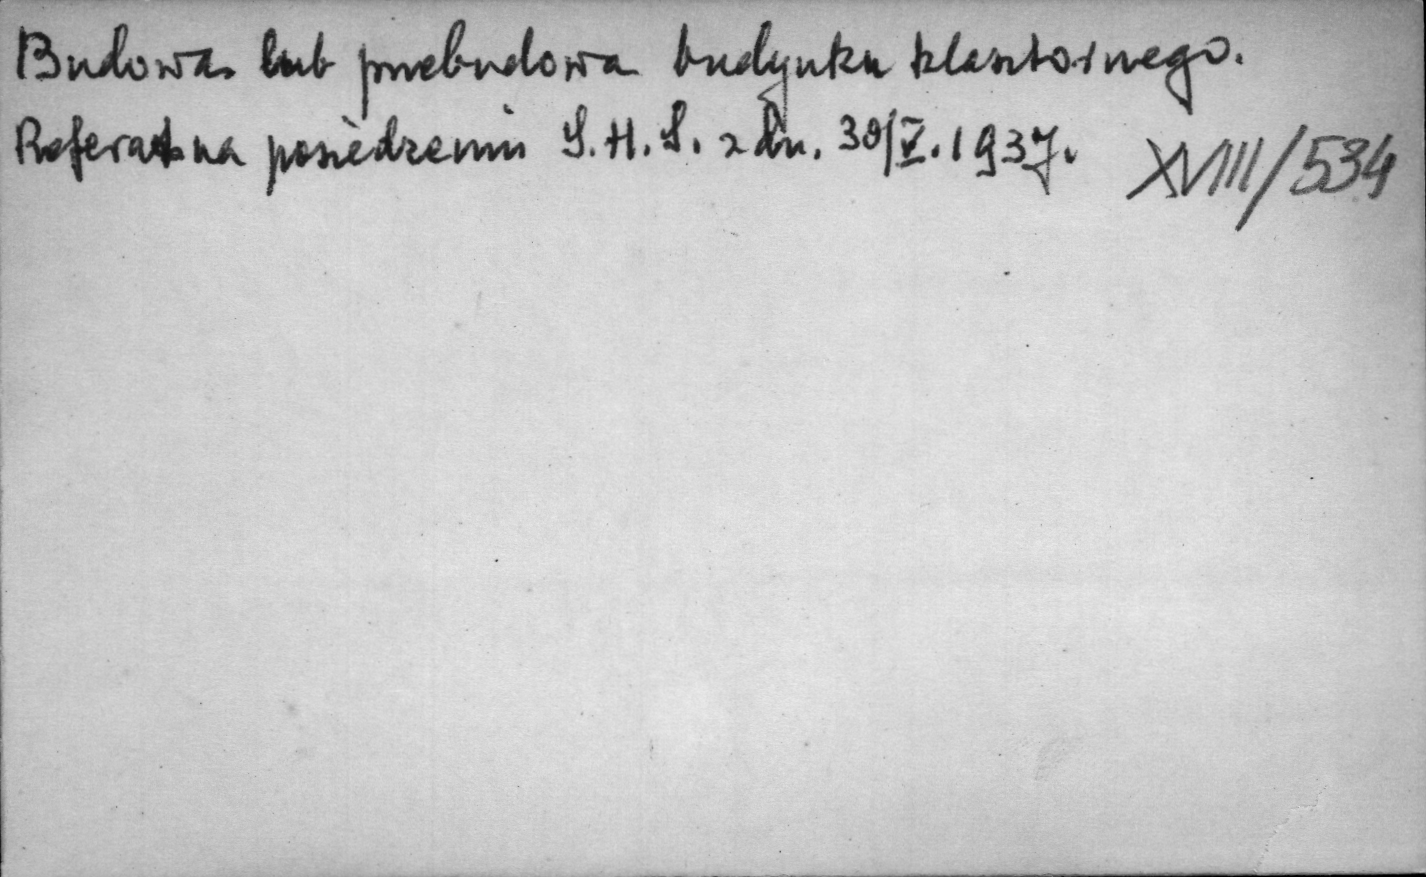 Budowa lub przebudowa budynku klasztornego.
Referat na posiedzeniu S.H.S. z dn. 30/V.1937. XVIII/534